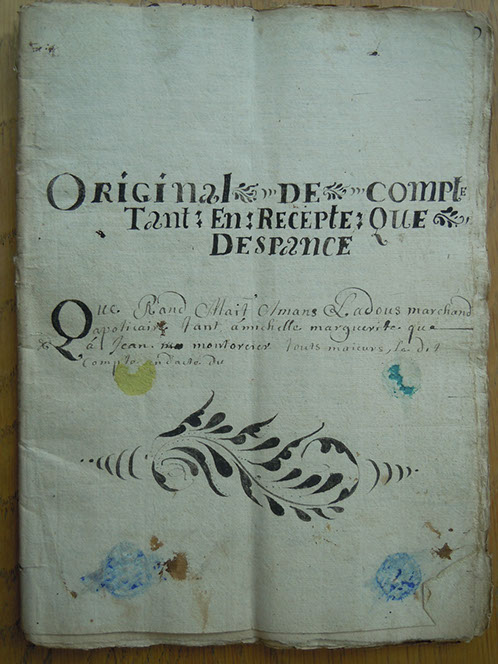 Original DE compte
Tant : En : Recepte : QUE
DESPANCE
Que Rand Mait Amans Ladous marchand
apoticaire tant á michelle marguerite que
á Jean montorcier touts maieurs, Le dit
Compte en dacte du